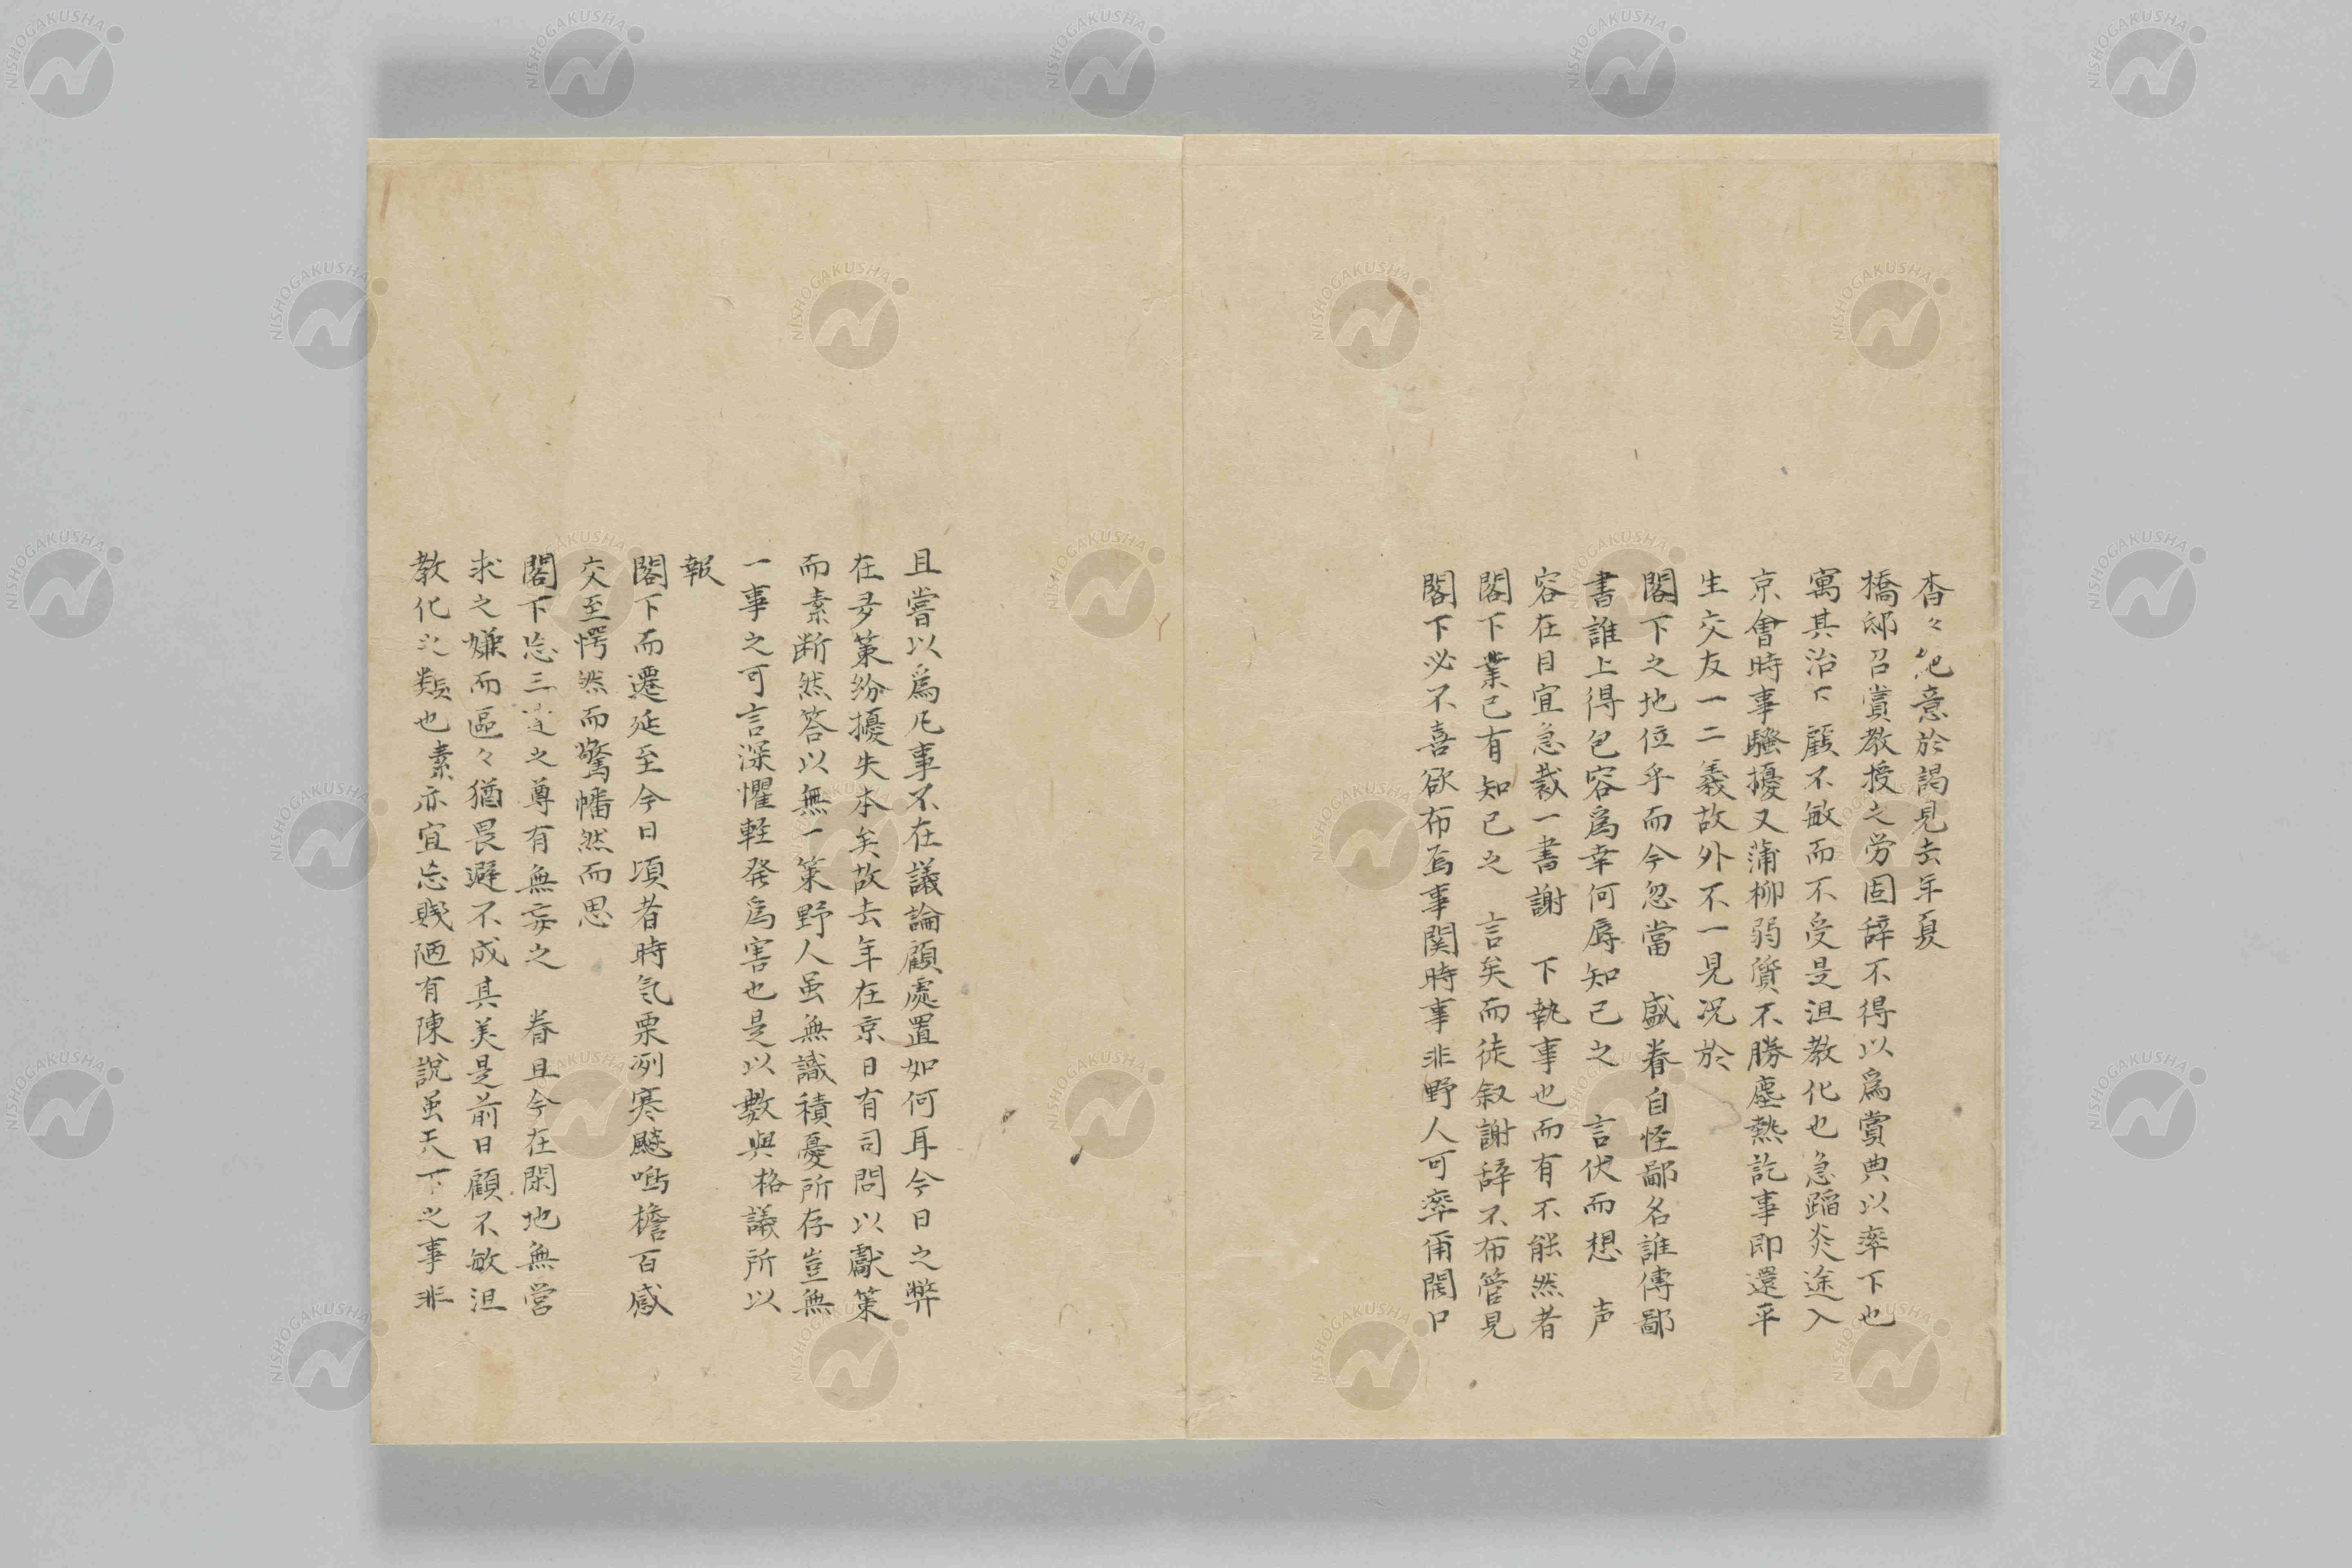 杳々絶意於謁見去年夏
橋邸召賞教授之労固辞不得以為賞典以率下也
寓其治下顧不敏而不受是沮教化也急蹈炎途入
京會時事騒擾又蒲柳弱質不勝塵熱訖事即還平
生交友一二義故外不一見况於
閣下之地位乎而今忽當　盛眷自怪鄙名誰傳鄙
書誰上得包容為幸何辱知己之　言伏而想　声
容在目宜急裁一書謝　下執事也而有不能然者
閣下業已有知己之　言矣而徒叙謝辞不布管見
閣下必不喜欲布焉事関時事非野人可率爾開口
且嘗以為凡事不在議論顧處置如何耳今日之弊
在多策紛擾失本矣故去年在京日有司問以獻策
而素断然答以無一策野人虽無識積憂所存豈無
一事之可言深懼軽発為害也是以數與格議所以
報
閣下而遷延至今日頃者時気栗冽寒颷鳴檐百感
交至愕然而驚幡然而思
閣下忘三達之尊有無妄之　眷且今在閑地無営
求之嫌而區々猶畏避不成其美是前日顧不敏沮
教化之類也素亦宜忘賤陋有陳說虽天下之事非
NISHOGAKUSHA